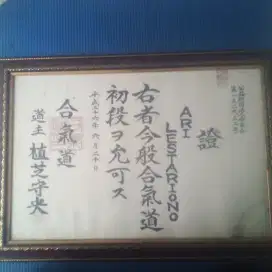 證
ARI
LESTARIONO
右者今般合氣道
初段ヲ允可ス
平成十六年六月三十日
合氣道
道主 植芝守央